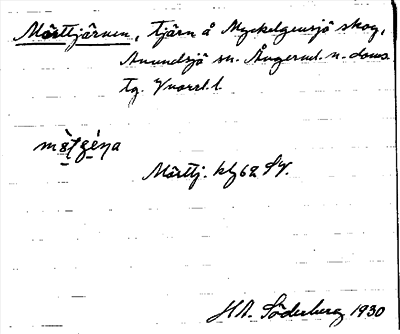 Mörttjärnen, tjärn å Myckelgensjö skog,
Anundsjö sn. Ångerml. n. doms.
tg. Vnorrl. l.
Mörttj. kbl 62 SV.
H.A. Söderberg 1930